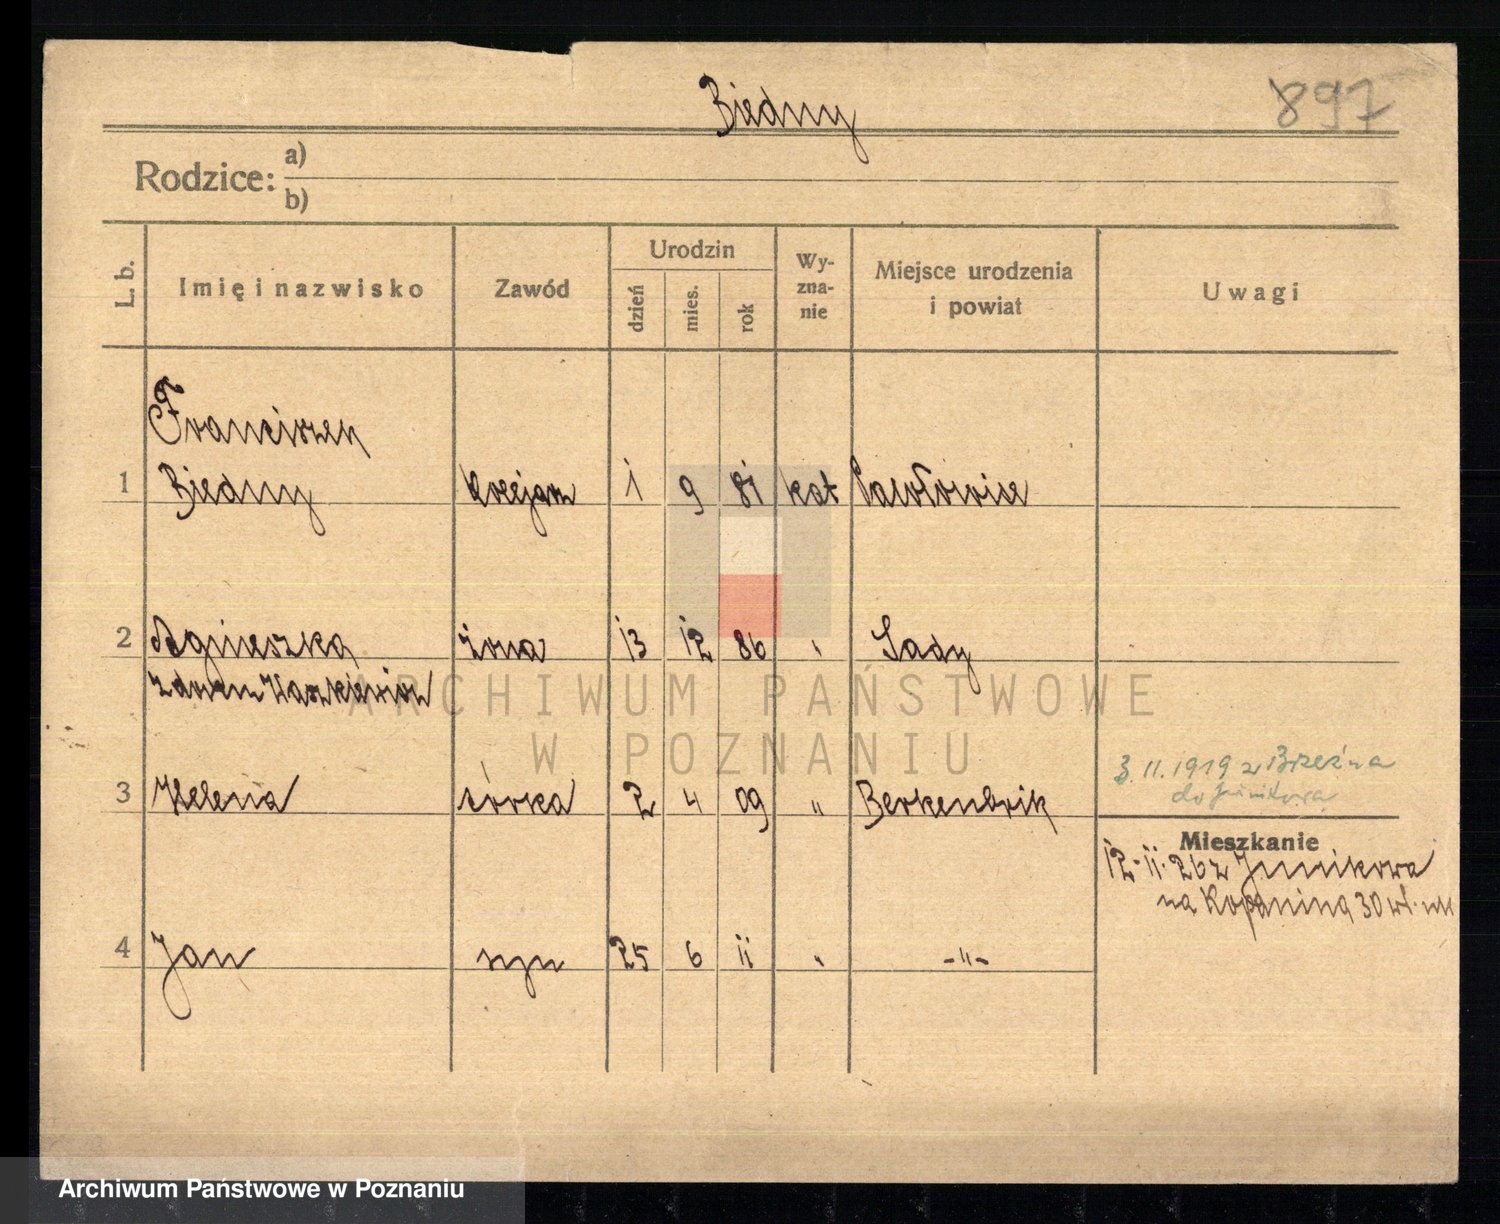 Biedny
897
Rodzice: a)
b)
L. b.
Imię i nazwisko
Zawód
Urodzin
dzień
mies.
rok
Wy-
zna-
nie
Miejsce urodzenia
i powiat
Uwagi
Franciszek
1 Biedny kolejarz 1 9 81 kat Pawłowice
2 Agnieszka żona 13 12 86 " Sady
z domu
3 Helena córka 2 4 09 " Berkenbrik
3.11.1919 z Brzeźna
do Junikowa
Mieszkanie
12-11-26 z Junikowa
na Kopaniną 30 wł.
4 Jan syn 25 6 11 " -"-
ARCHIWUM PAŃSTWOWE
W POZNANIU
Archiwum Państwowe w Poznaniu